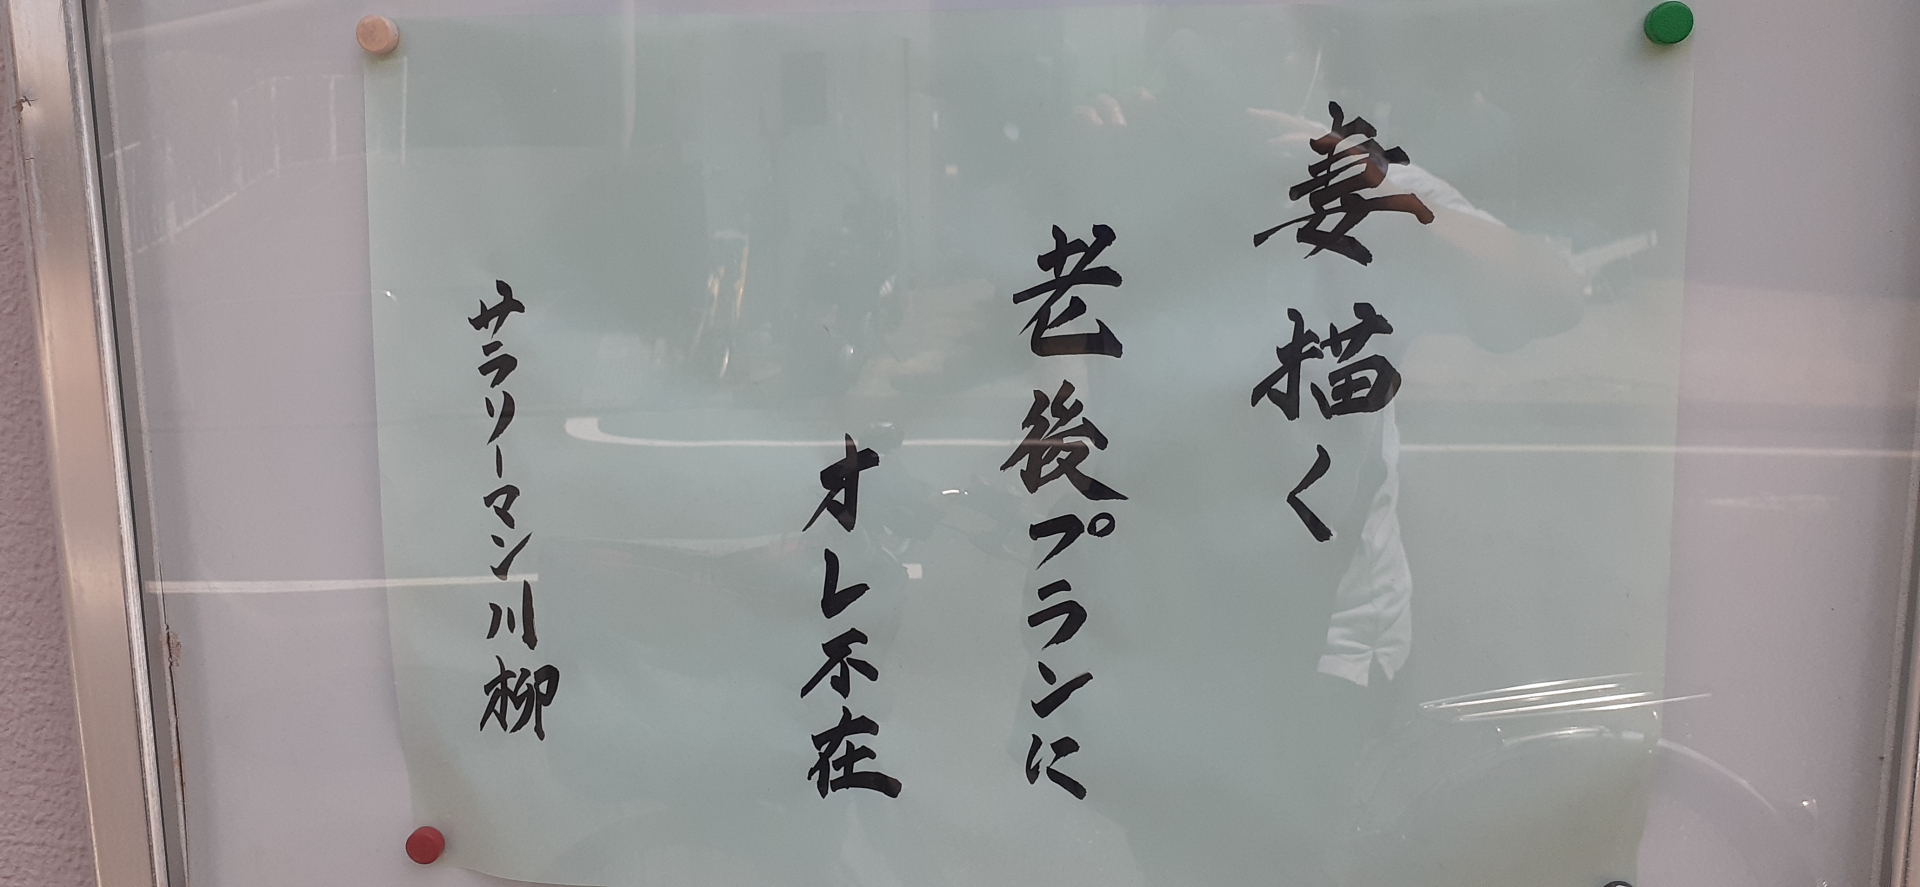 妻描く
老後プランに
オレ不在
サラリーマン川柳